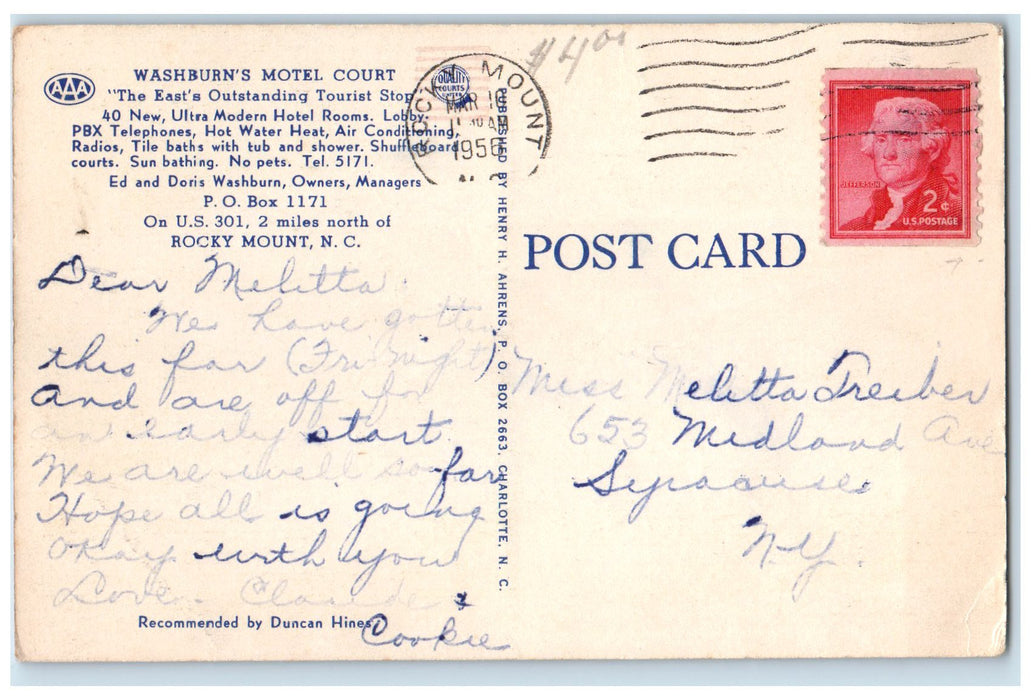 AAA
WASHBURN'S MOTEL COURT
"The East's Outstanding Tourist Stop
40 New, Ultra Modern Hotel Rooms. Lobby,
PBX Telephones, Hot Water Heat, Air Conditioning,
Radios, Tile baths with tub and shower. Shuffleboard
courts. Sun bathing. No pets. Tel. 5171.
Ed and Doris Washburn, Owners, Managers
P. O. Box 1171
On U.S. 301, 2 miles north of
ROCKY MOUNT, N. C.
QUALITY
COURTS
$4.00
ROCKY MOUNT
MAR 10
AM
1956
N. C.
JEFFERSON
2¢
U.S. POSTAGE
PUBLISHED BY HENRY H. AHRENS, P. O. BOX 2663, CHARLOTTE, N. C.
POST CARD
Dear Melitta:
We have gotten
this far (Fri Night)
And are off for
an early start.
We are well so far
Hope all is going
okay with you
Love - Claude &
Cookie
Recommended by Duncan Hines
Miss Melitta Treiber
653 Midland Ave
Syracuse
N.Y.